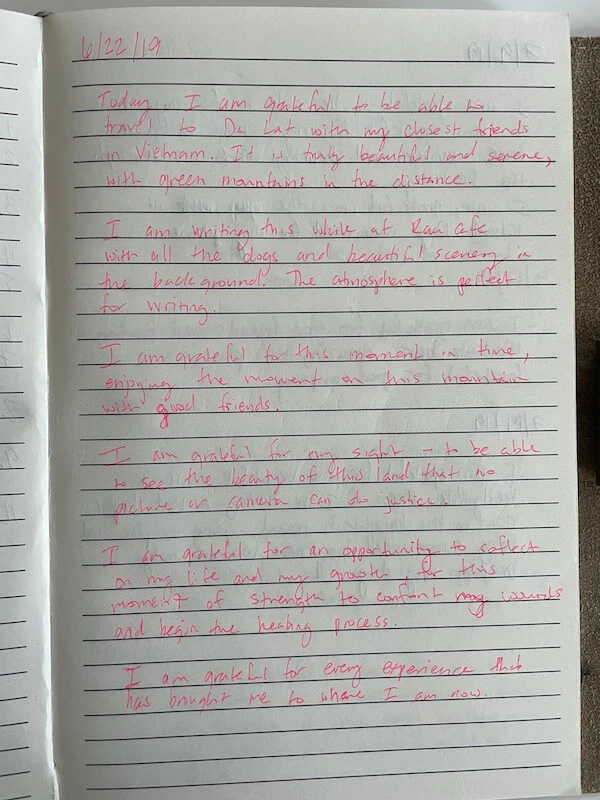 6/22/19
Today, I am grateful to be able to
travel to Da Lat with my closest friends
in Vietnam. It is truly beautiful and serene,
with green mountains in the distance.
I am writing this while at Rau Cafe
with all the dogs and beautiful scenery in
the background. The atmosphere is perfect
for writing.
I am grateful for this moment in time,
enjoying the moment on this mountain
with good friends.
I am grateful for my sight – to be able
to see the beauty of this land that no
picture or camera can do justice.
I am grateful for an opportunity to reflect
on my life and my growth, for this
moment of strength to confront my wounds
and begin the healing process.
I am grateful for every experience that
has brought me to where I am now.